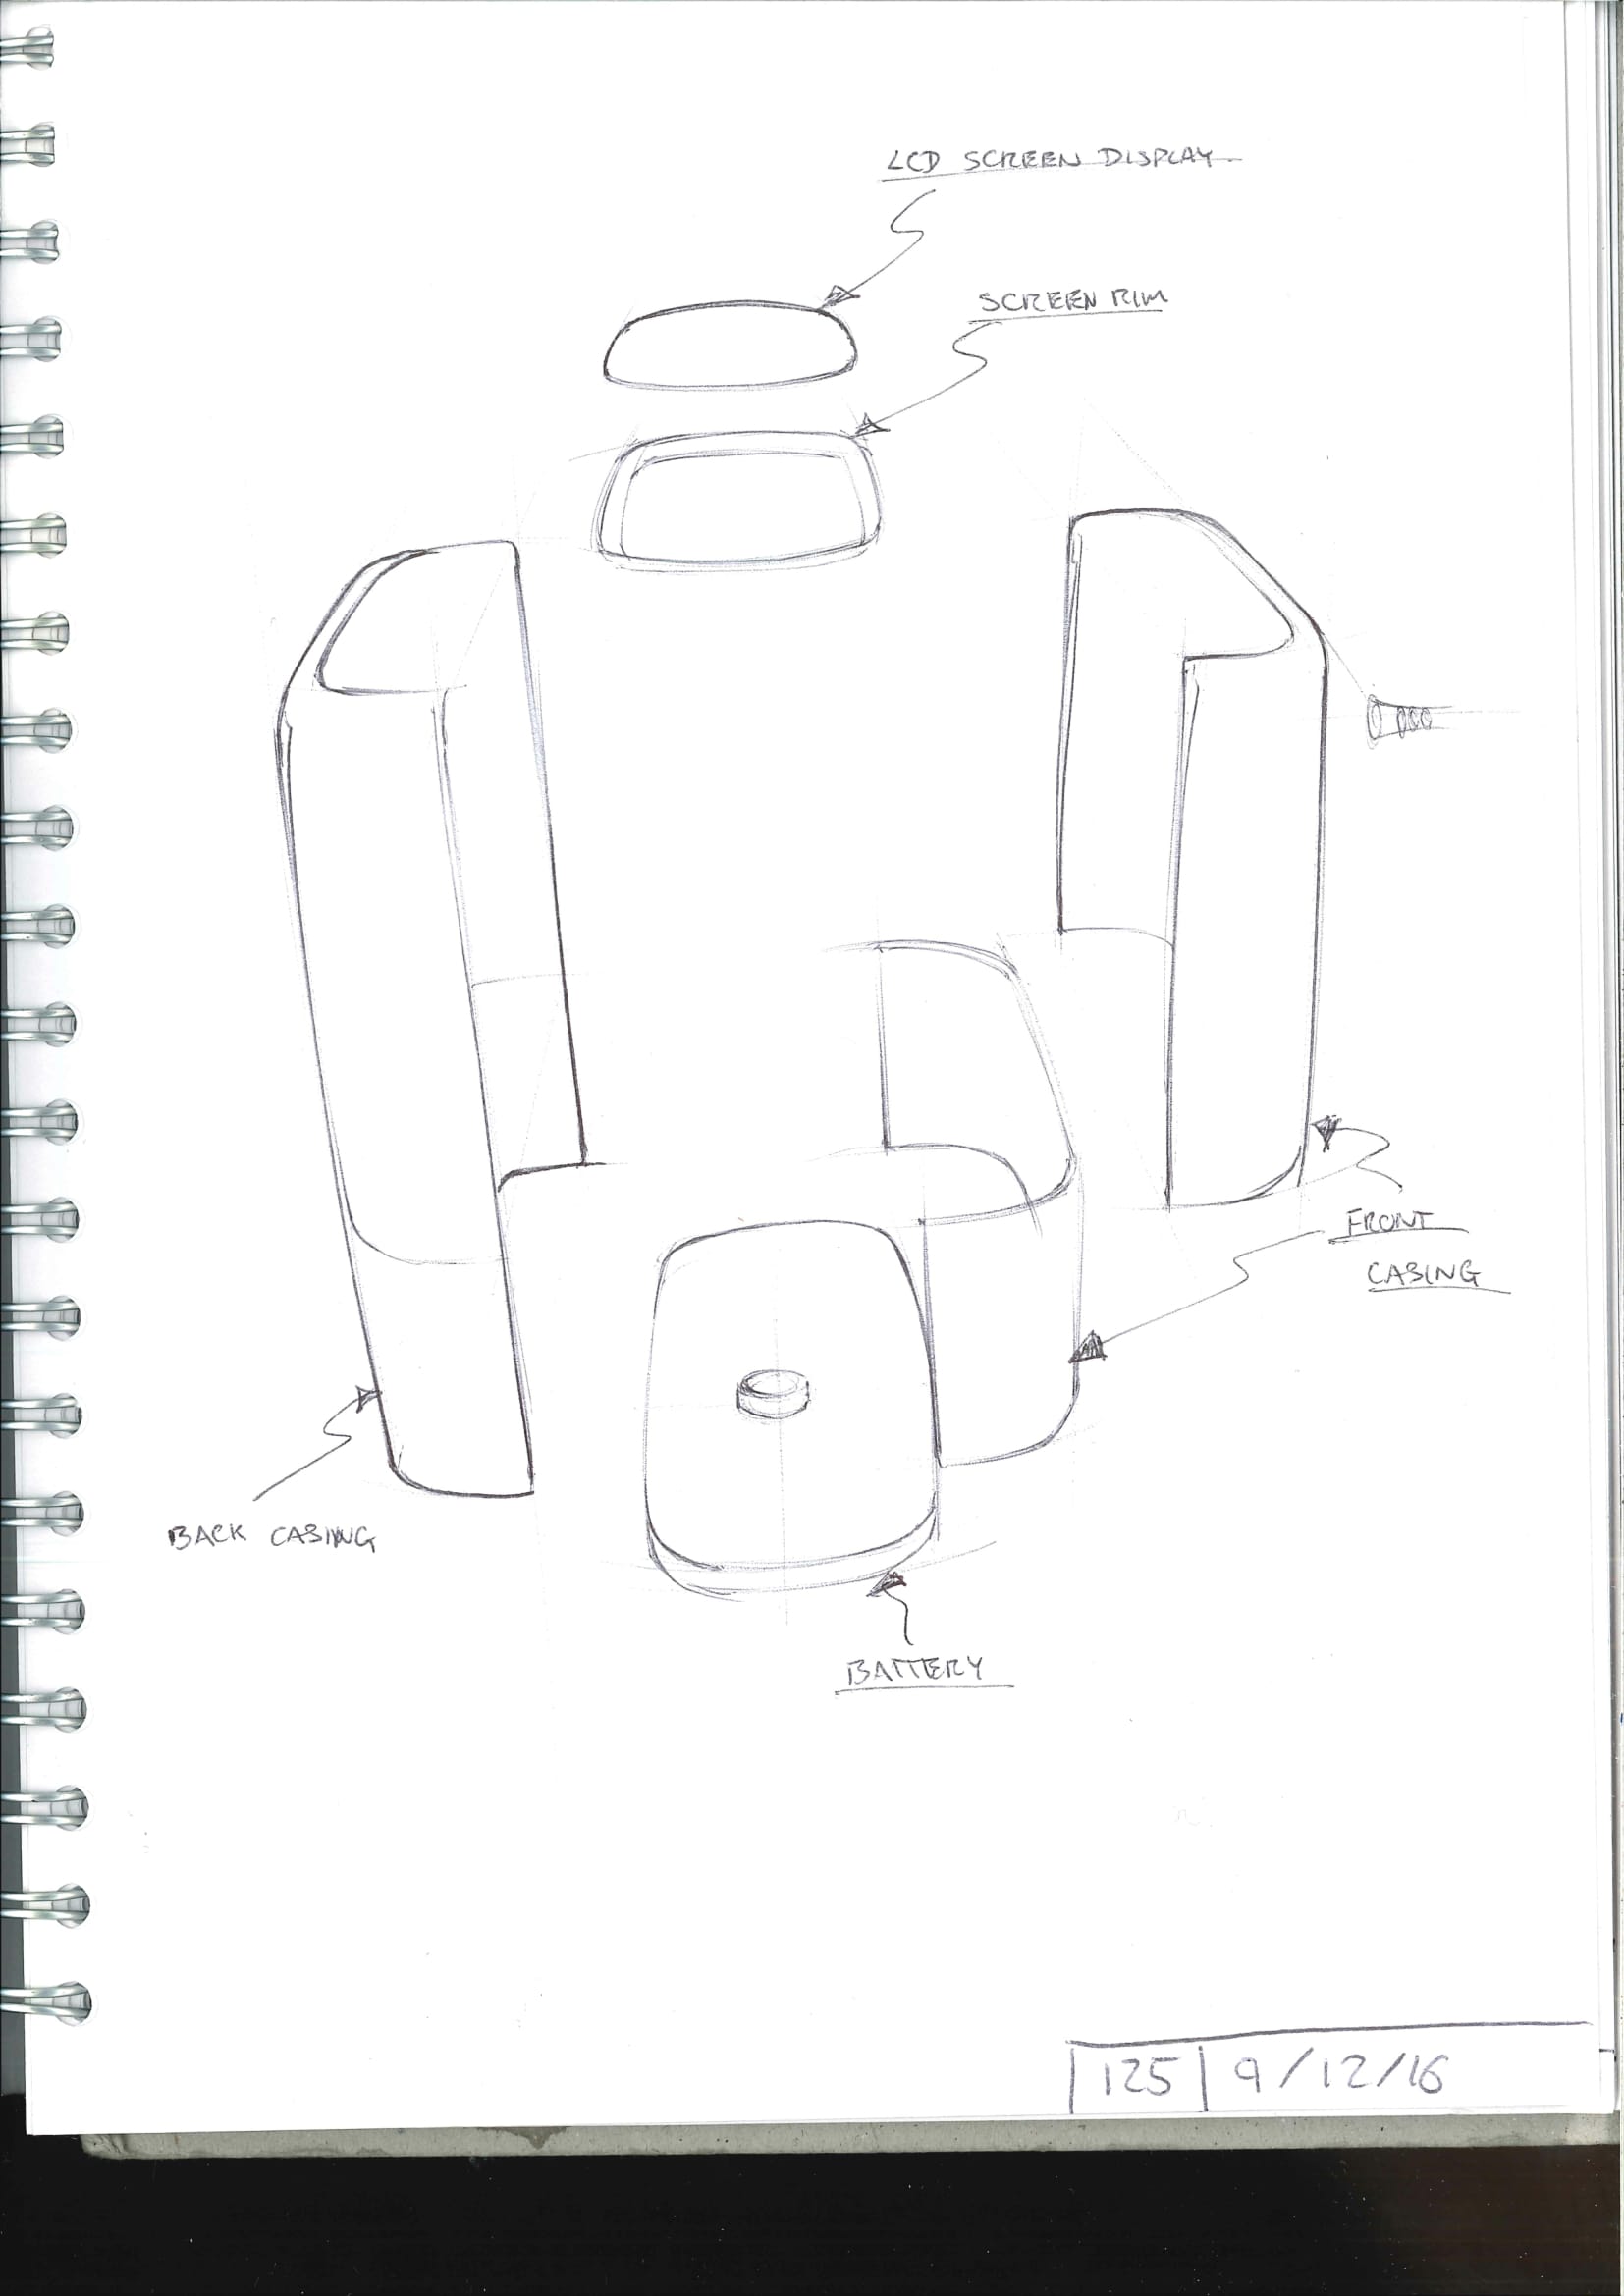 LCD SCREEN DISPLAY
SCREEN RIM
FRONT
CASING
BACK CASING
BATTERY
125 9/12/16